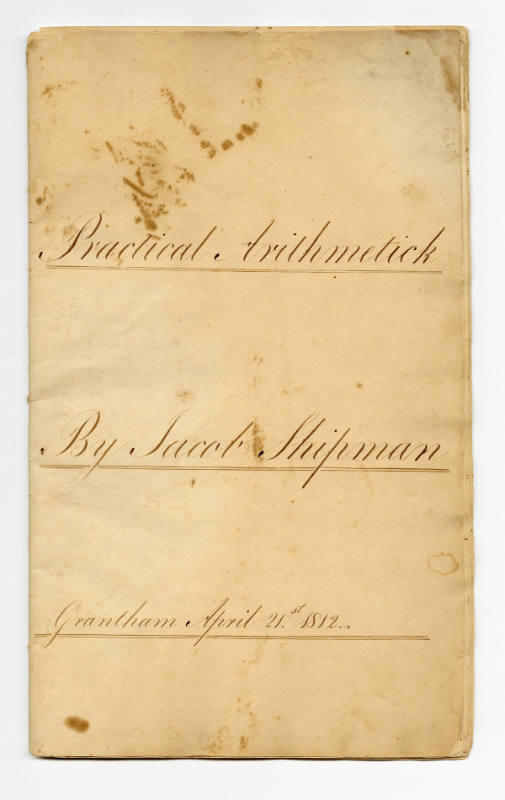 Practical Arithmetick
By Jacob Shipman
Grantham April 21.st 1812.